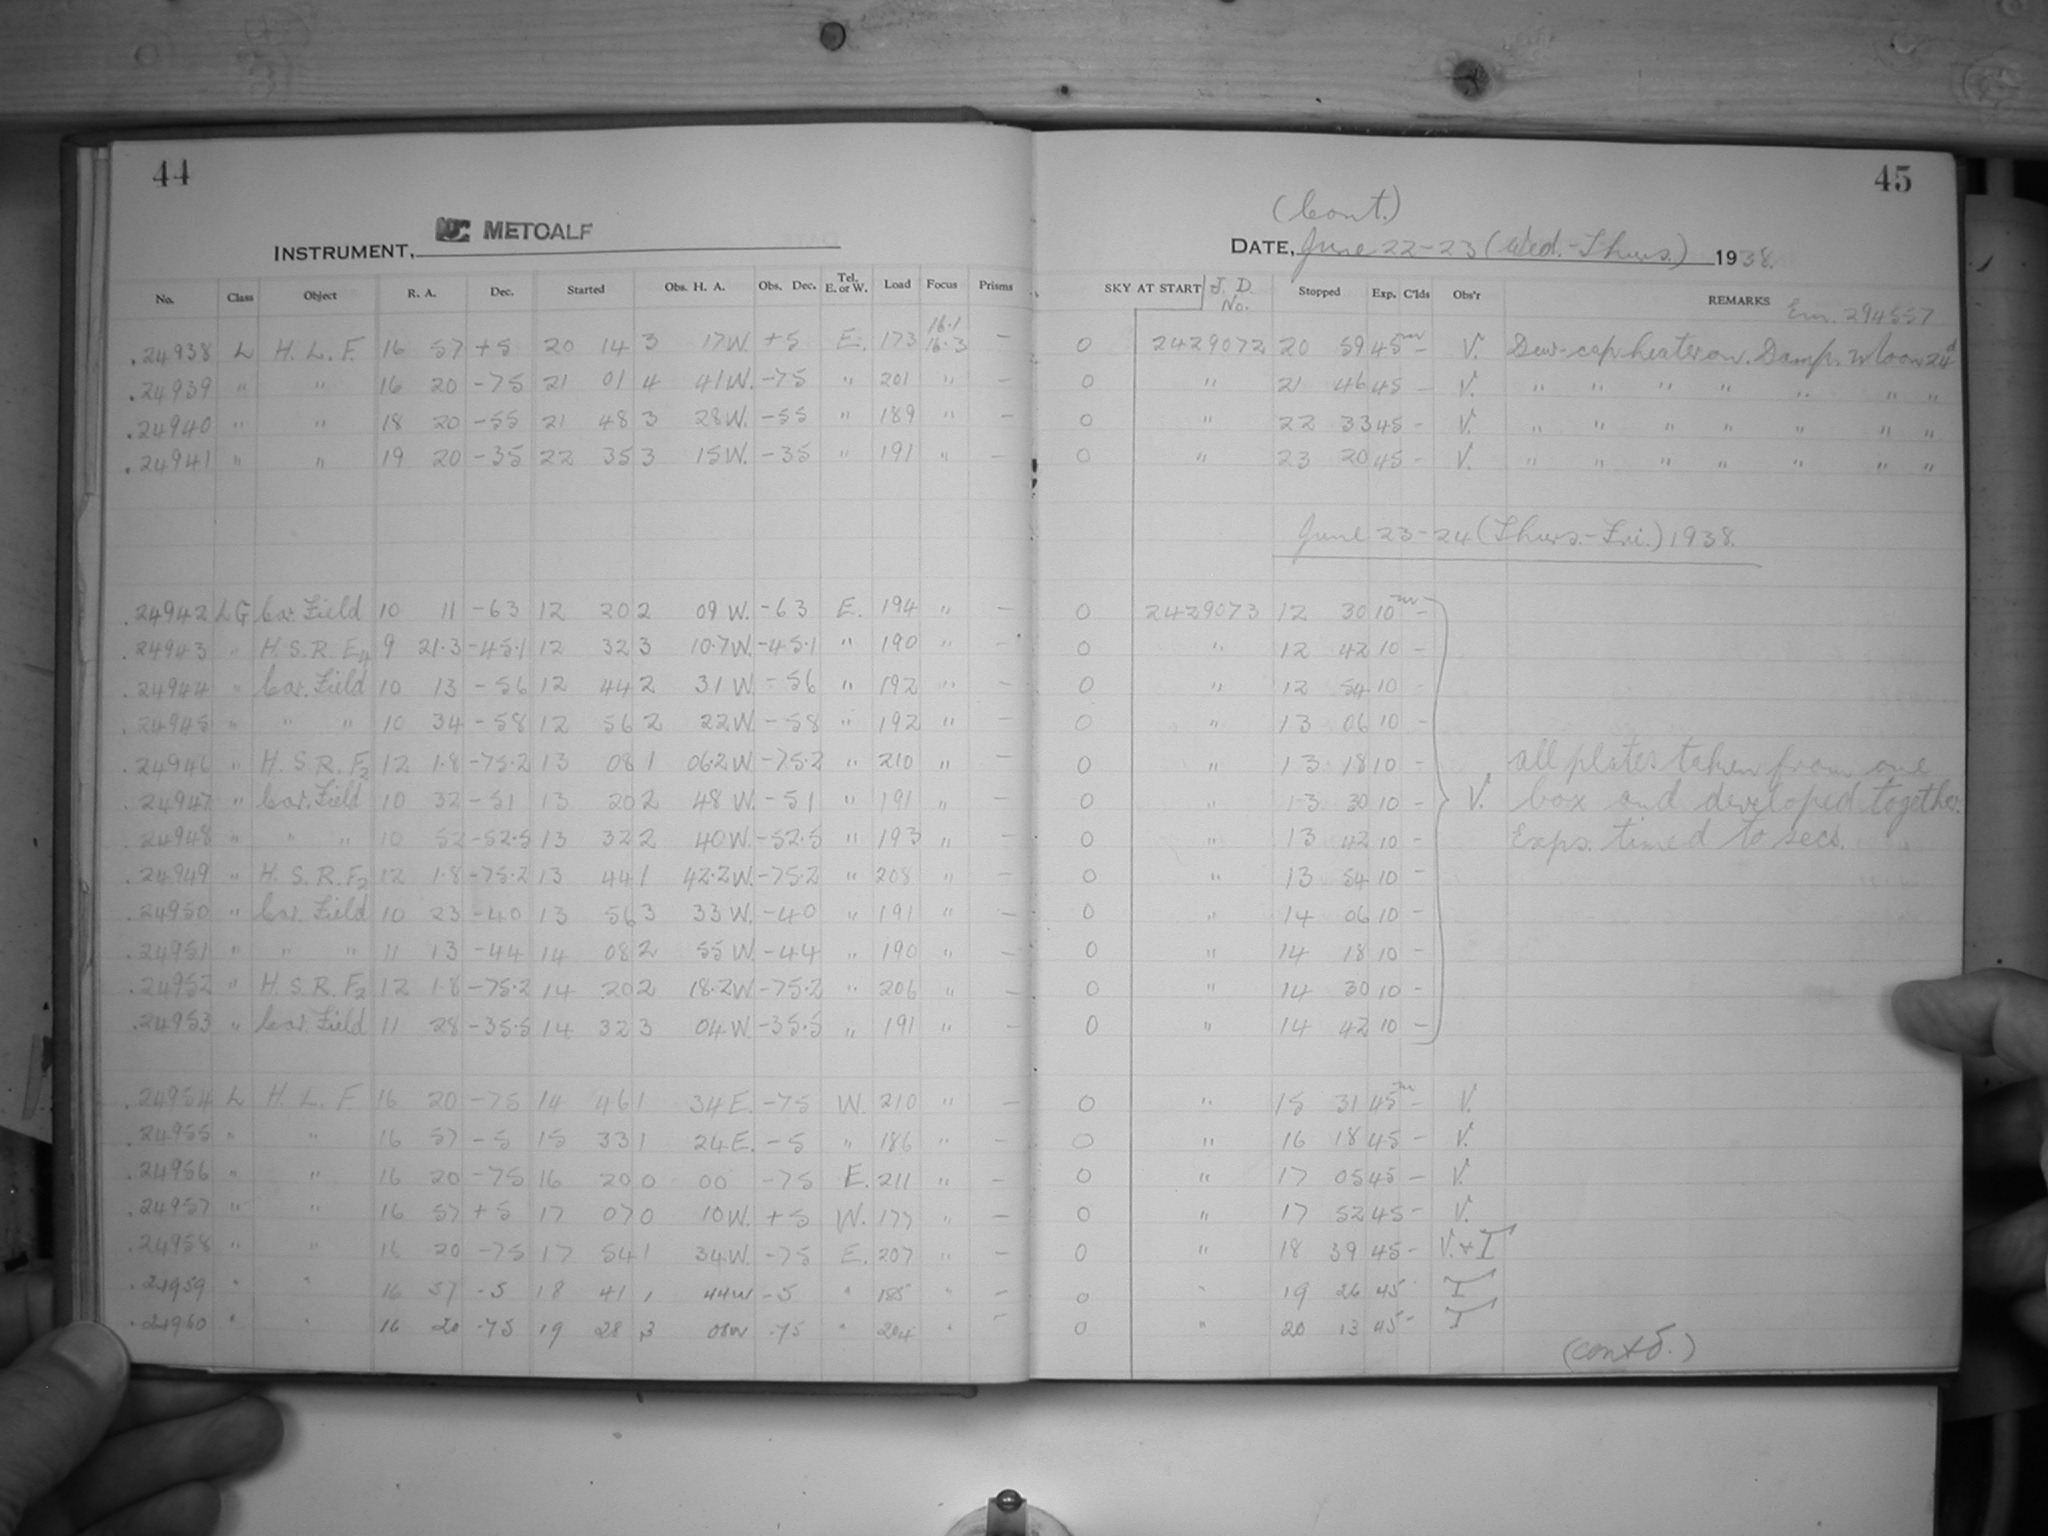 44
METCALF
INSTRUMENT,
No. Class Object R. A. Dec. Started Obs. H. A. Obs. Dec. Tel. E. or W. Load Focus Prisms
.24938 L H. L. F. 16 57 +5 20 14 3 17W. +5 E. 173 16.1 16.3 —
.24939 " " 16 20 -75 21 01 4 41W. -75 " 201 " —
.24940 " " 18 20 -55 21 48 3 28W. -55 " 189 " —
.24941 " " 19 20 -35 22 35 3 15W. -35 " 191 " —
.24942 LG Car. Field 10 11 -63 12 20 2 09 W. -63 E. 194 " —
.24943 " H. S. R. E4 9 21.3 -45.1 12 32 3 10.7W. -45.1 " 190 " —
.24944 " Car. Field 10 13 -56 12 44 2 31 W. -56 " 192 " —
.24945 " " " 10 34 -58 12 56 2 22W. -58 " 192 " —
.24946 " H. S. R. F2 12 1.8 -75.2 13 08 1 06.2W -75.2 " 210 " —
.24947 " Car. Field 10 32 -51 13 20 2 48 W. -51 " 191 " —
.24948 " " " 10 52 -52.5 13 32 2 40W. -52.5 " 193 " —
.24949 " H. S. R. F2 12 1.8 -75.2 13 44 1 42.2W. -75.2 " 208 " —
.24950 " Car. Field 10 23 -40 13 56 3 33 W. -40 " 191 " —
.24951 " " " 11 13 -44 14 08 2 55 W -44 " 190 " —
.24952 " H. S. R. F2 12 1.8 -75.2 14 20 2 18.2W -75.2 " 206 " —
.24953 " Car. Field 11 28 -35.5 14 32 3 04W -35.5 " 191 " —
.24954 L H. L. F. 16 20 -75 14 46 1 34E. -75 W. 210 " —
.24955 " " 16 57 -5 15 33 1 24E. -5 " 186 " —
.24956 " " 16 20 -75 16 20 0 00 -75 E. 211 " —
.24957 " " 16 57 +5 17 07 0 10W. +5 W. 177 " —
.24958 " " 16 20 -75 17 54 1 34W. -75 E. 207 " —
.24959 " " 16 57 -5 18 41 1 44W -5 " 185 " —
.24960 " " 16 20 -75 19 28 3 08W -75 " 204 " —
45
(Cont.)
DATE, June 22-23 (Wed.-Thurs.) 1938.
SKY AT START J. D. No. Stopped Exp. C'lds Obs'r REMARKS Em. 294557
0 2429072 20 59 45m — V. Dew-cap heater on. Damp. Moon 24d
0 " 21 46 45 — V. " " " " " " "
0 " 22 33 45 — V. " " " " " " "
0 " 23 20 45 — V. " " " " " " "
June 23-24 (Thurs.-Fri.) 1938.
0 2429073 12 30 10m —
0 " 12 42 10 —
0 " 12 54 10 —
0 " 13 06 10 —
0 " 13 18 10 — all plates taken from one
0 " 13 30 10 — V. box and developed together.
0 " 13 42 10 — Exps. timed to secs.
0 " 13 54 10 —
0 " 14 06 10 —
0 " 14 18 10 —
0 " 14 30 10 —
0 " 14 42 10 —
0 " 15 31 45m — V.
0 " 16 18 45 — V.
0 " 17 05 45 — V.
0 " 17 52 45 — V.
0 " 18 39 45 — V. + I
0 " 19 26 45 I
0 " 20 13 45 — I
(contd.)